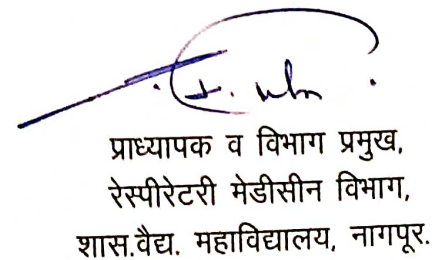 प्राध्यापक व विभाग प्रमुख,
रेस्पीरेटरी मेडीसीन विभाग,
शास.वैद्य. महाविद्यालय, नागपूर.